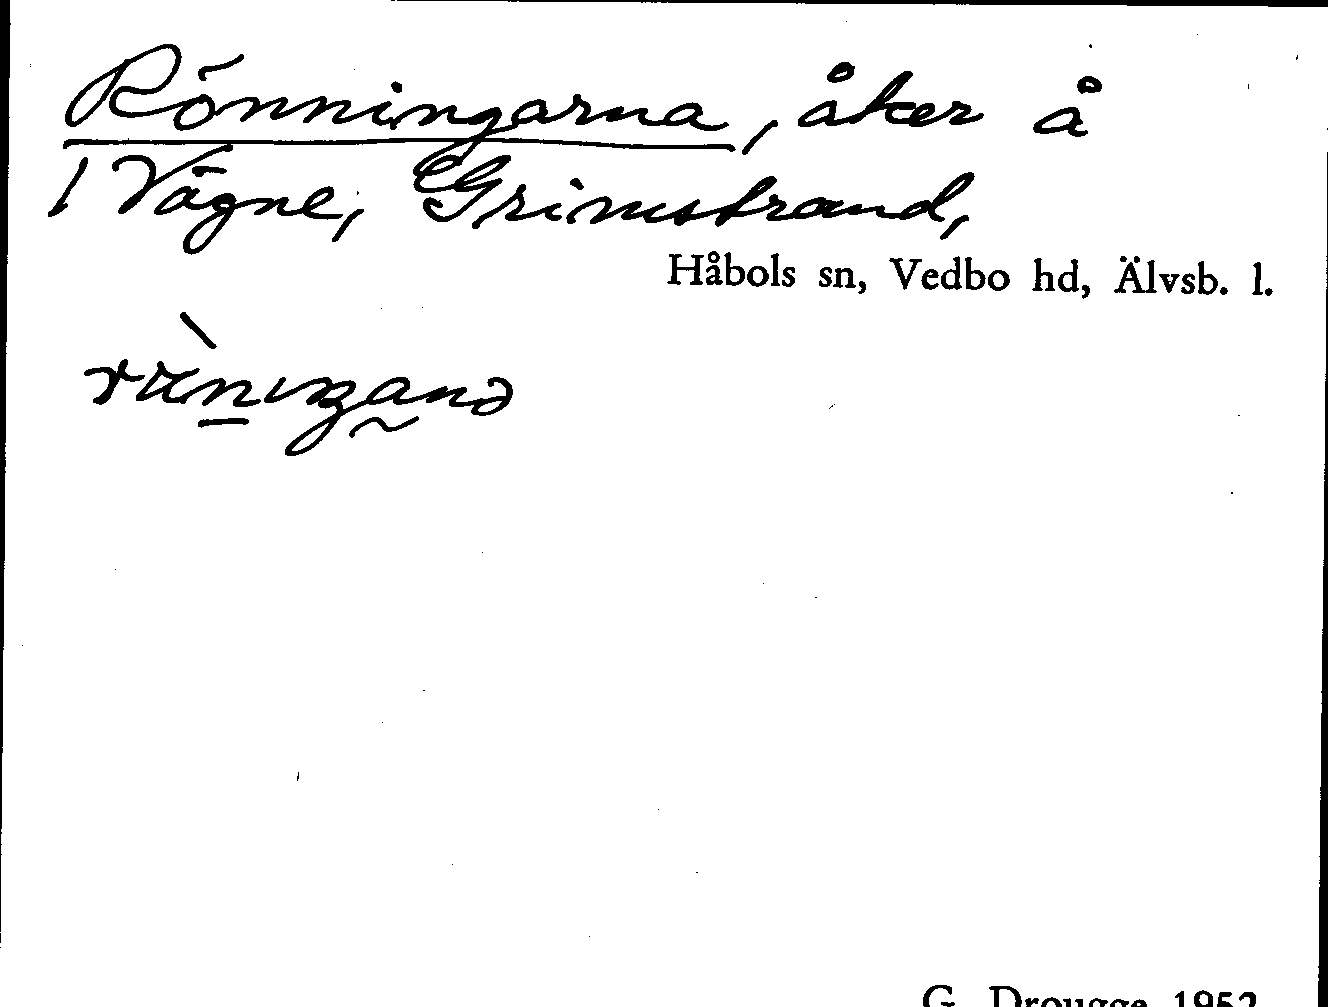 Rönningarna, åker å
1 Vägne, Grimstrand,
Håbols sn, Vedbo hd, Älvsb. l.
G. Drougge 1952